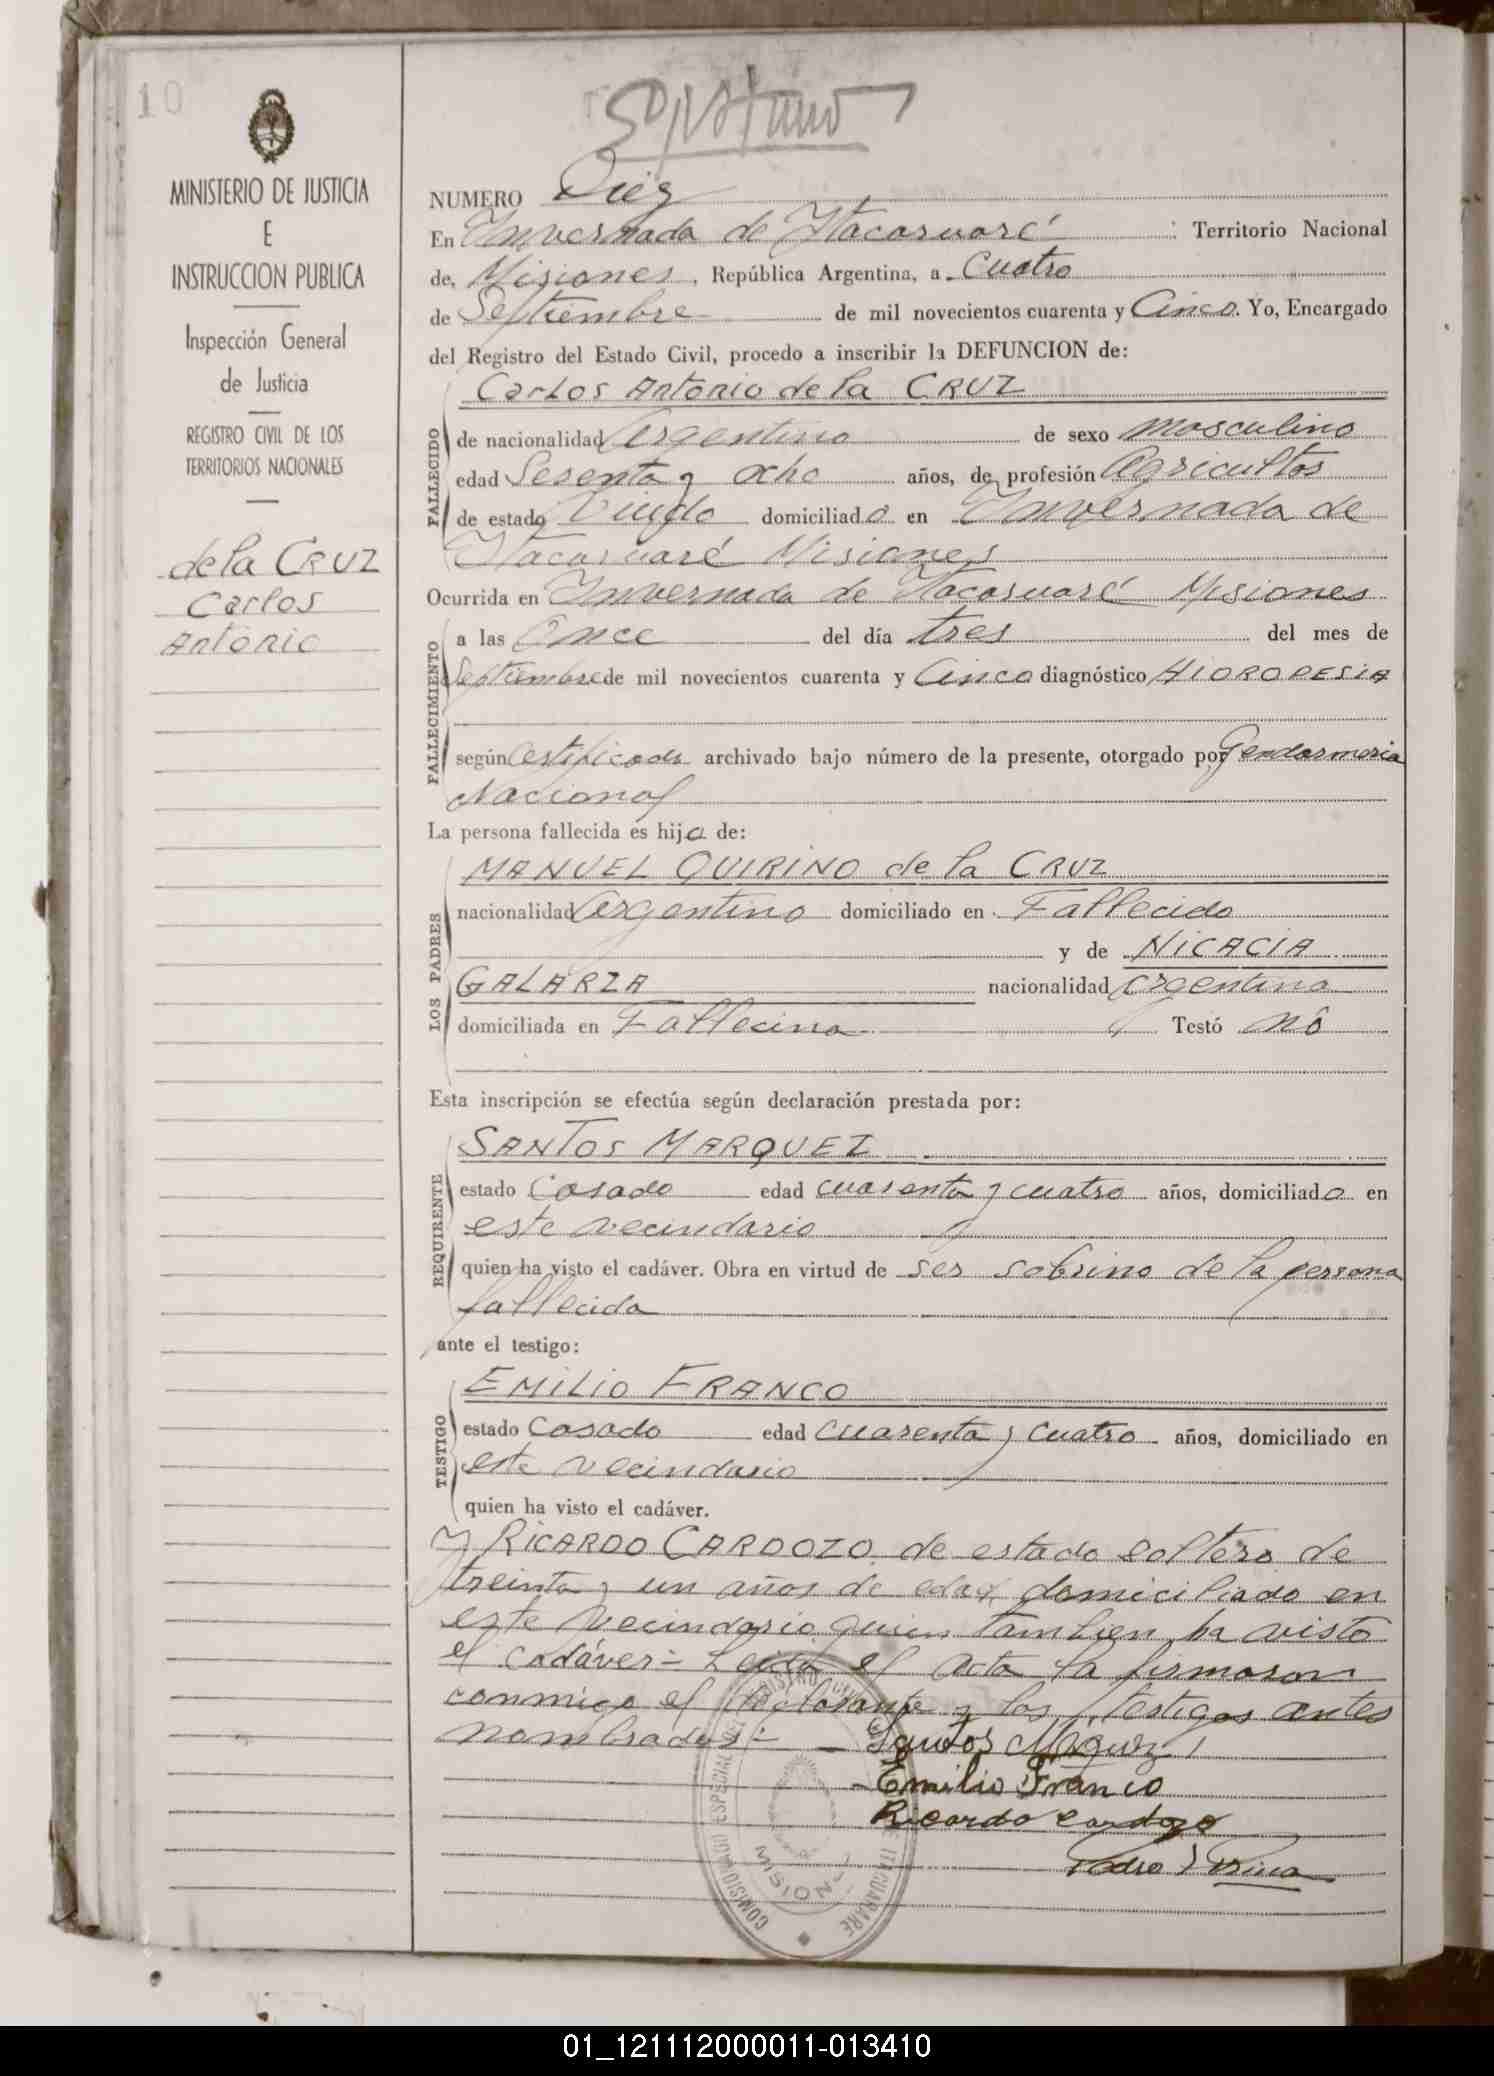 10
MINISTERIO DE JUSTICIA
E
INSTRUCCION PUBLICA
Inspección General
de Justicia
REGISTRO CIVIL DE LOS
TERRITORIOS NACIONALES
de la CRUZ
Carlos
Antonio
NUMERO Diez
En Invernada de Itacaruaré : Territorio Nacional
de, Misiones, República Argentina, a Cuatro
de Septiembre de mil novecientos cuarenta y Cinco. Yo, Encargado
del Registro del Estado Civil, procedo a inscribir la DEFUNCION de:
FALLECIDO
Carlos Antonio de la CRUZ
de nacionalidad Argentino de sexo masculino
edad Sesenta y ocho años, de profesión Agricultor
de estado Viudo domiciliado en Invernada de
Itacaruaré Misiones
Ocurrida en Invernada de Itacaruaré Misiones
FALLECIMIENTO
a las Once del día tres del mes de
Septiembre de mil novecientos cuarenta y Cinco diagnóstico HIDROPESIA
según Certificado archivado bajo número de la presente, otorgado por Gendarmeria
Nacional
La persona fallecida es hijo de:
LOS PADRES
MANUEL QUIRINO de la CRUZ
nacionalidad Argentino domiciliado en Fallecido
y de NICACIA
GALARZA nacionalidad Argentina
domiciliada en Fallecina Testó nó
Esta inscripción se efectúa según declaración prestada por:
REQUIRENTE
SANTOS MARQUEZ
estado Casado edad cuarenta y cuatro años, domiciliado en
este vecindario
quien ha visto el cadáver. Obra en virtud de ser sobrino de la persona
fallecida
ante el testigo:
TESTIGO
EMILIO FRANCO
estado Casado edad cuarenta y cuatro años, domiciliado en
este vecindario
quien ha visto el cadáver.
y RICARDO CARDOZO de estado soltero de
treinta y un años de edad, domiciliado en
este vecindario quien tambien ha visto
el cadáver- Leida el acta la firmaron
conmigo el declarante y los testigos antes
nombrados-
Santos
Emilio Franco
Ricardo Cardozo
Pedro
MISIONES
ITACUARARE
01_121112000011-013410